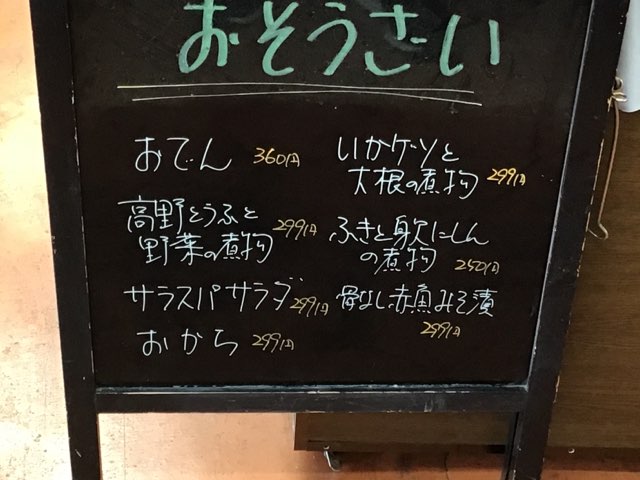 おそうざい
おでん 360円
高野とうふと
野菜の煮物 299円
サラスパサラダ 299円
おから 299円
いかゲソと
大根の煮物 299円
ふきと身欠にしん
の煮物 250円
骨なし赤魚みそ漬
299円